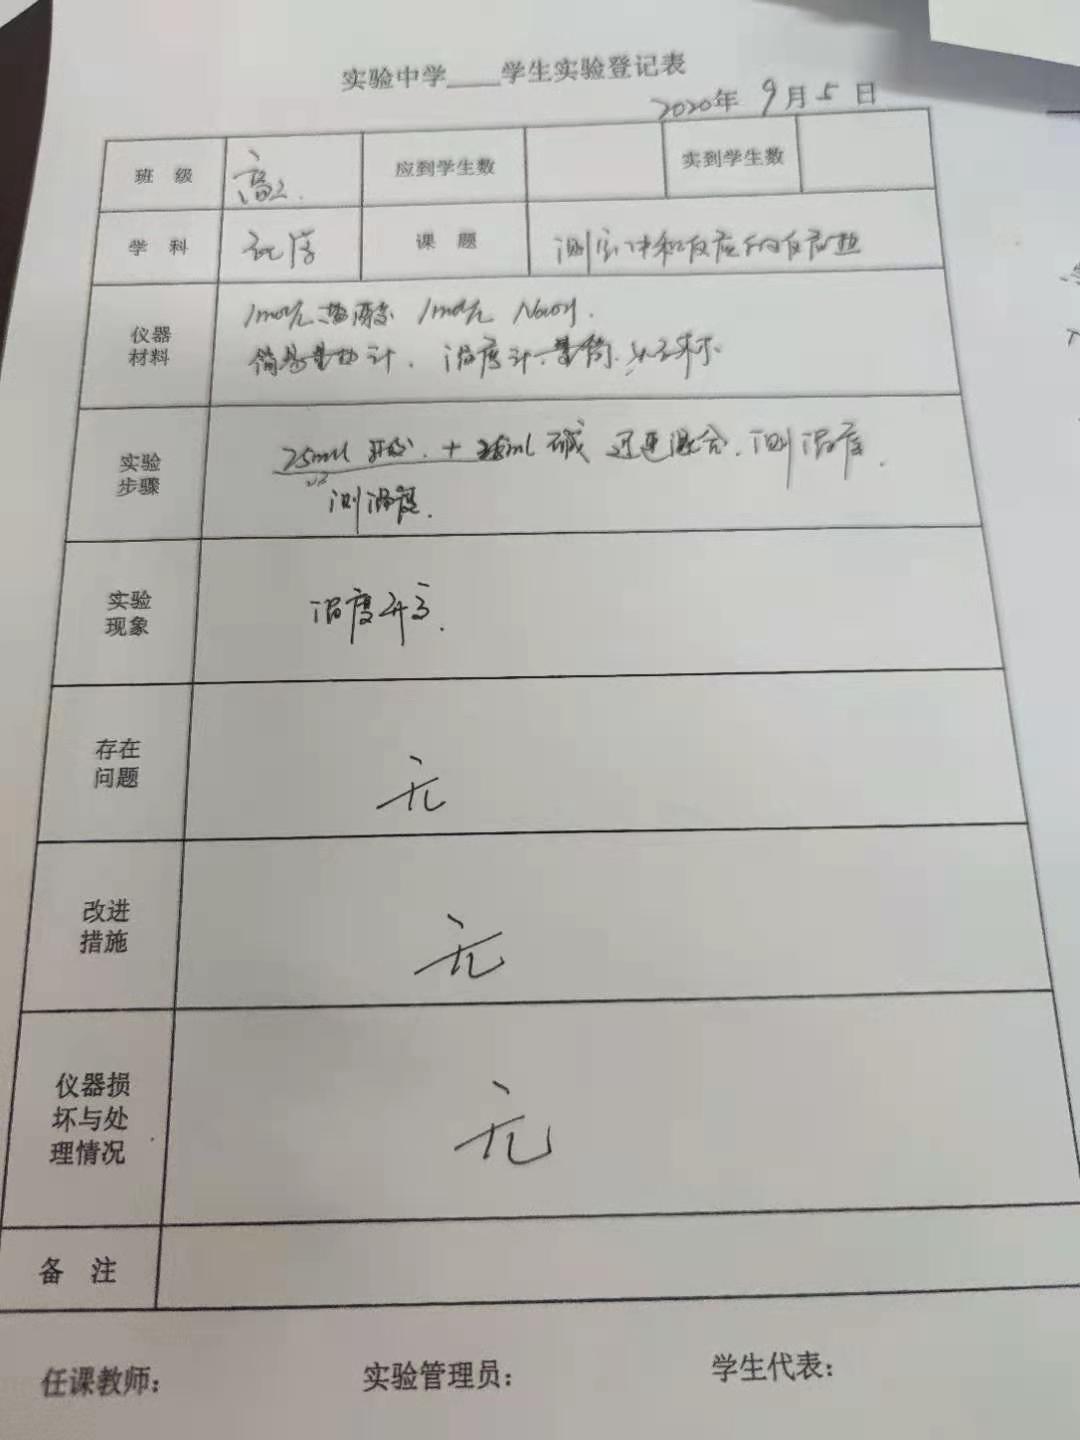 实验中学____学生实验登记表
2020年 9月 5日
班 级 高二. 应到学生数 实到学生数
学 科 化学 课 题 测定中和反应的反应热
仪器
材料
1mol/L 盐酸 1mol/L NaOH.
简易量热计. 温度计. 量筒. 烧杯
实验
步骤
25ml + 25ml 碱 迅速混合. 测温度.
测温度.
实验
现象
温度升高.
存在
问题
无
改进
措施
无
仪器损
坏与处
理情况
无
备 注
任课教师: 实验管理员: 学生代表: